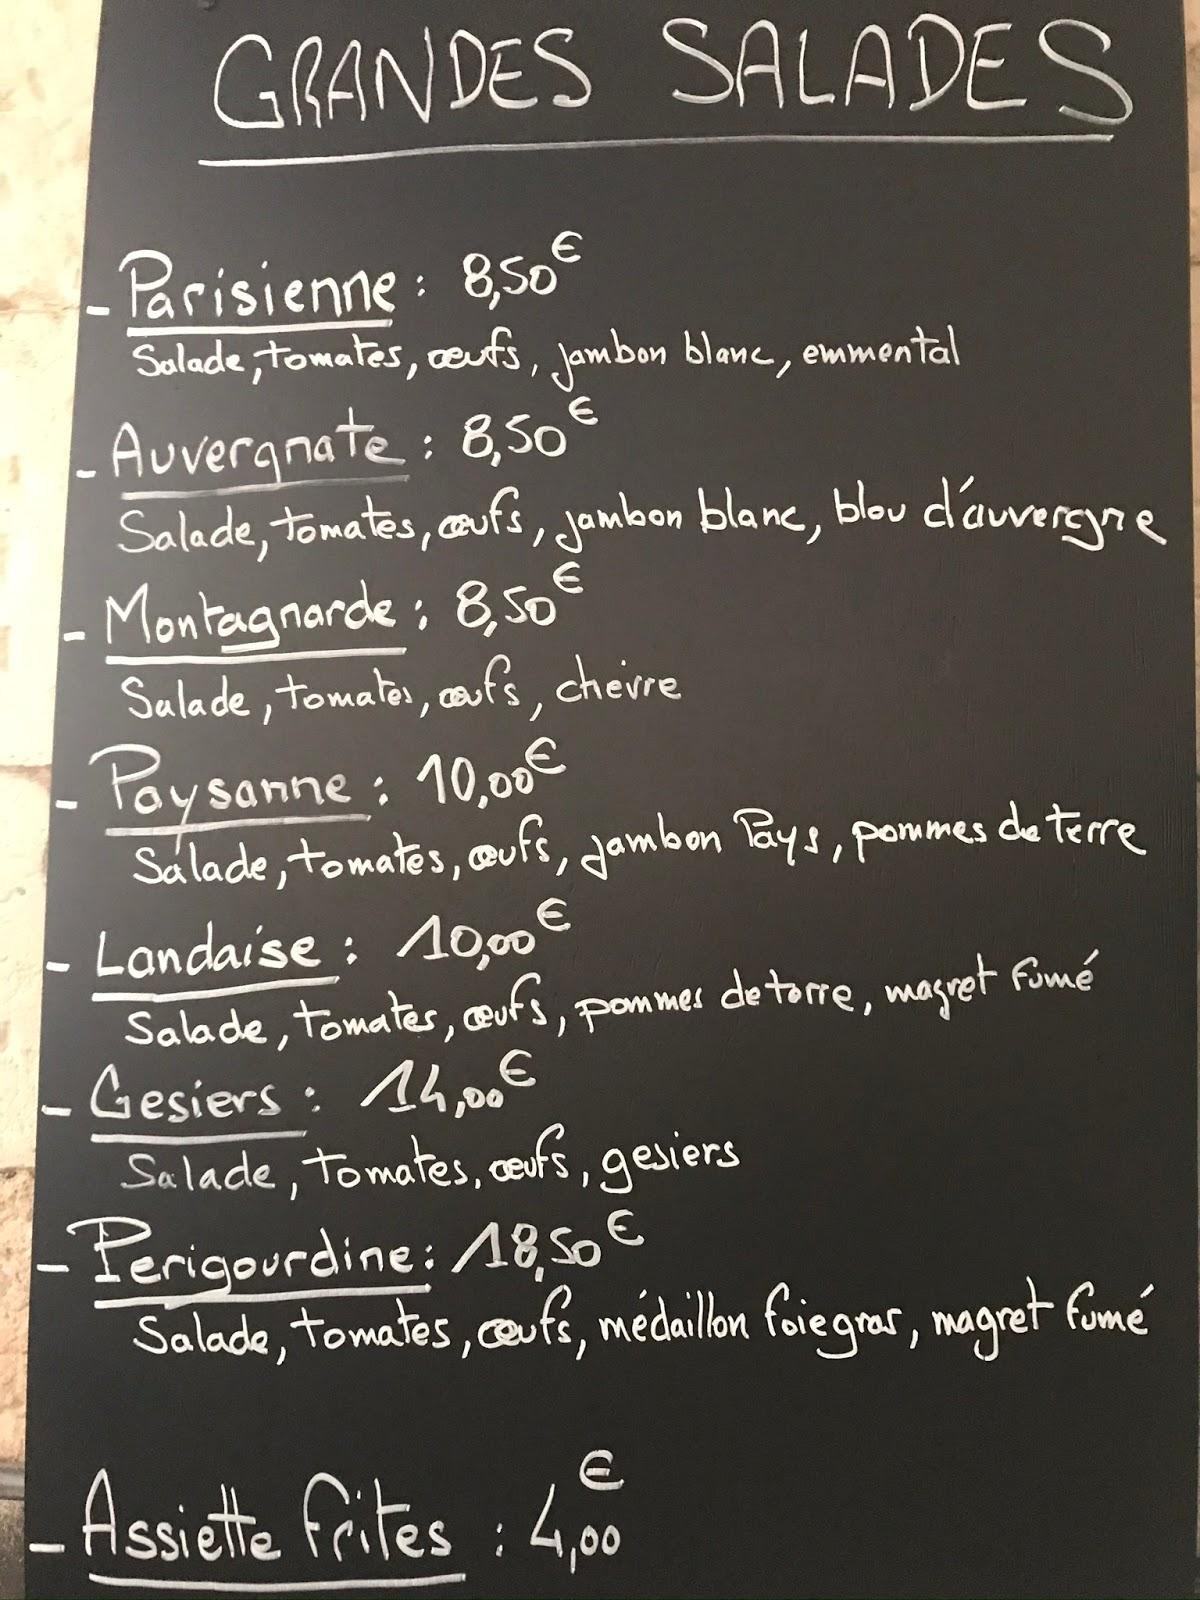 GRANDES SALADES
- Parisienne : 8,50€
Salade, tomates, œufs, jambon blanc, emmental
- Auvergnate : 8,50€
Salade, tomates, œufs, jambon blanc, bleu d'auvergne
- Montagnarde : 8,50€
Salade, tomates, œufs, chèvre
- Paysanne : 10,00€
Salade, tomates, œufs, jambon Pays, pommes de terre
- Landaise : 10,00€
Salade, tomates, œufs, pommes de terre, magret fumé
- Gesiers : 14,00€
Salade, tomates, œufs, gesiers
- Perigourdine : 18,50€
Salade, tomates, œufs, médaillon foie gras, magret fumé
- Assiette frites : 4,00€